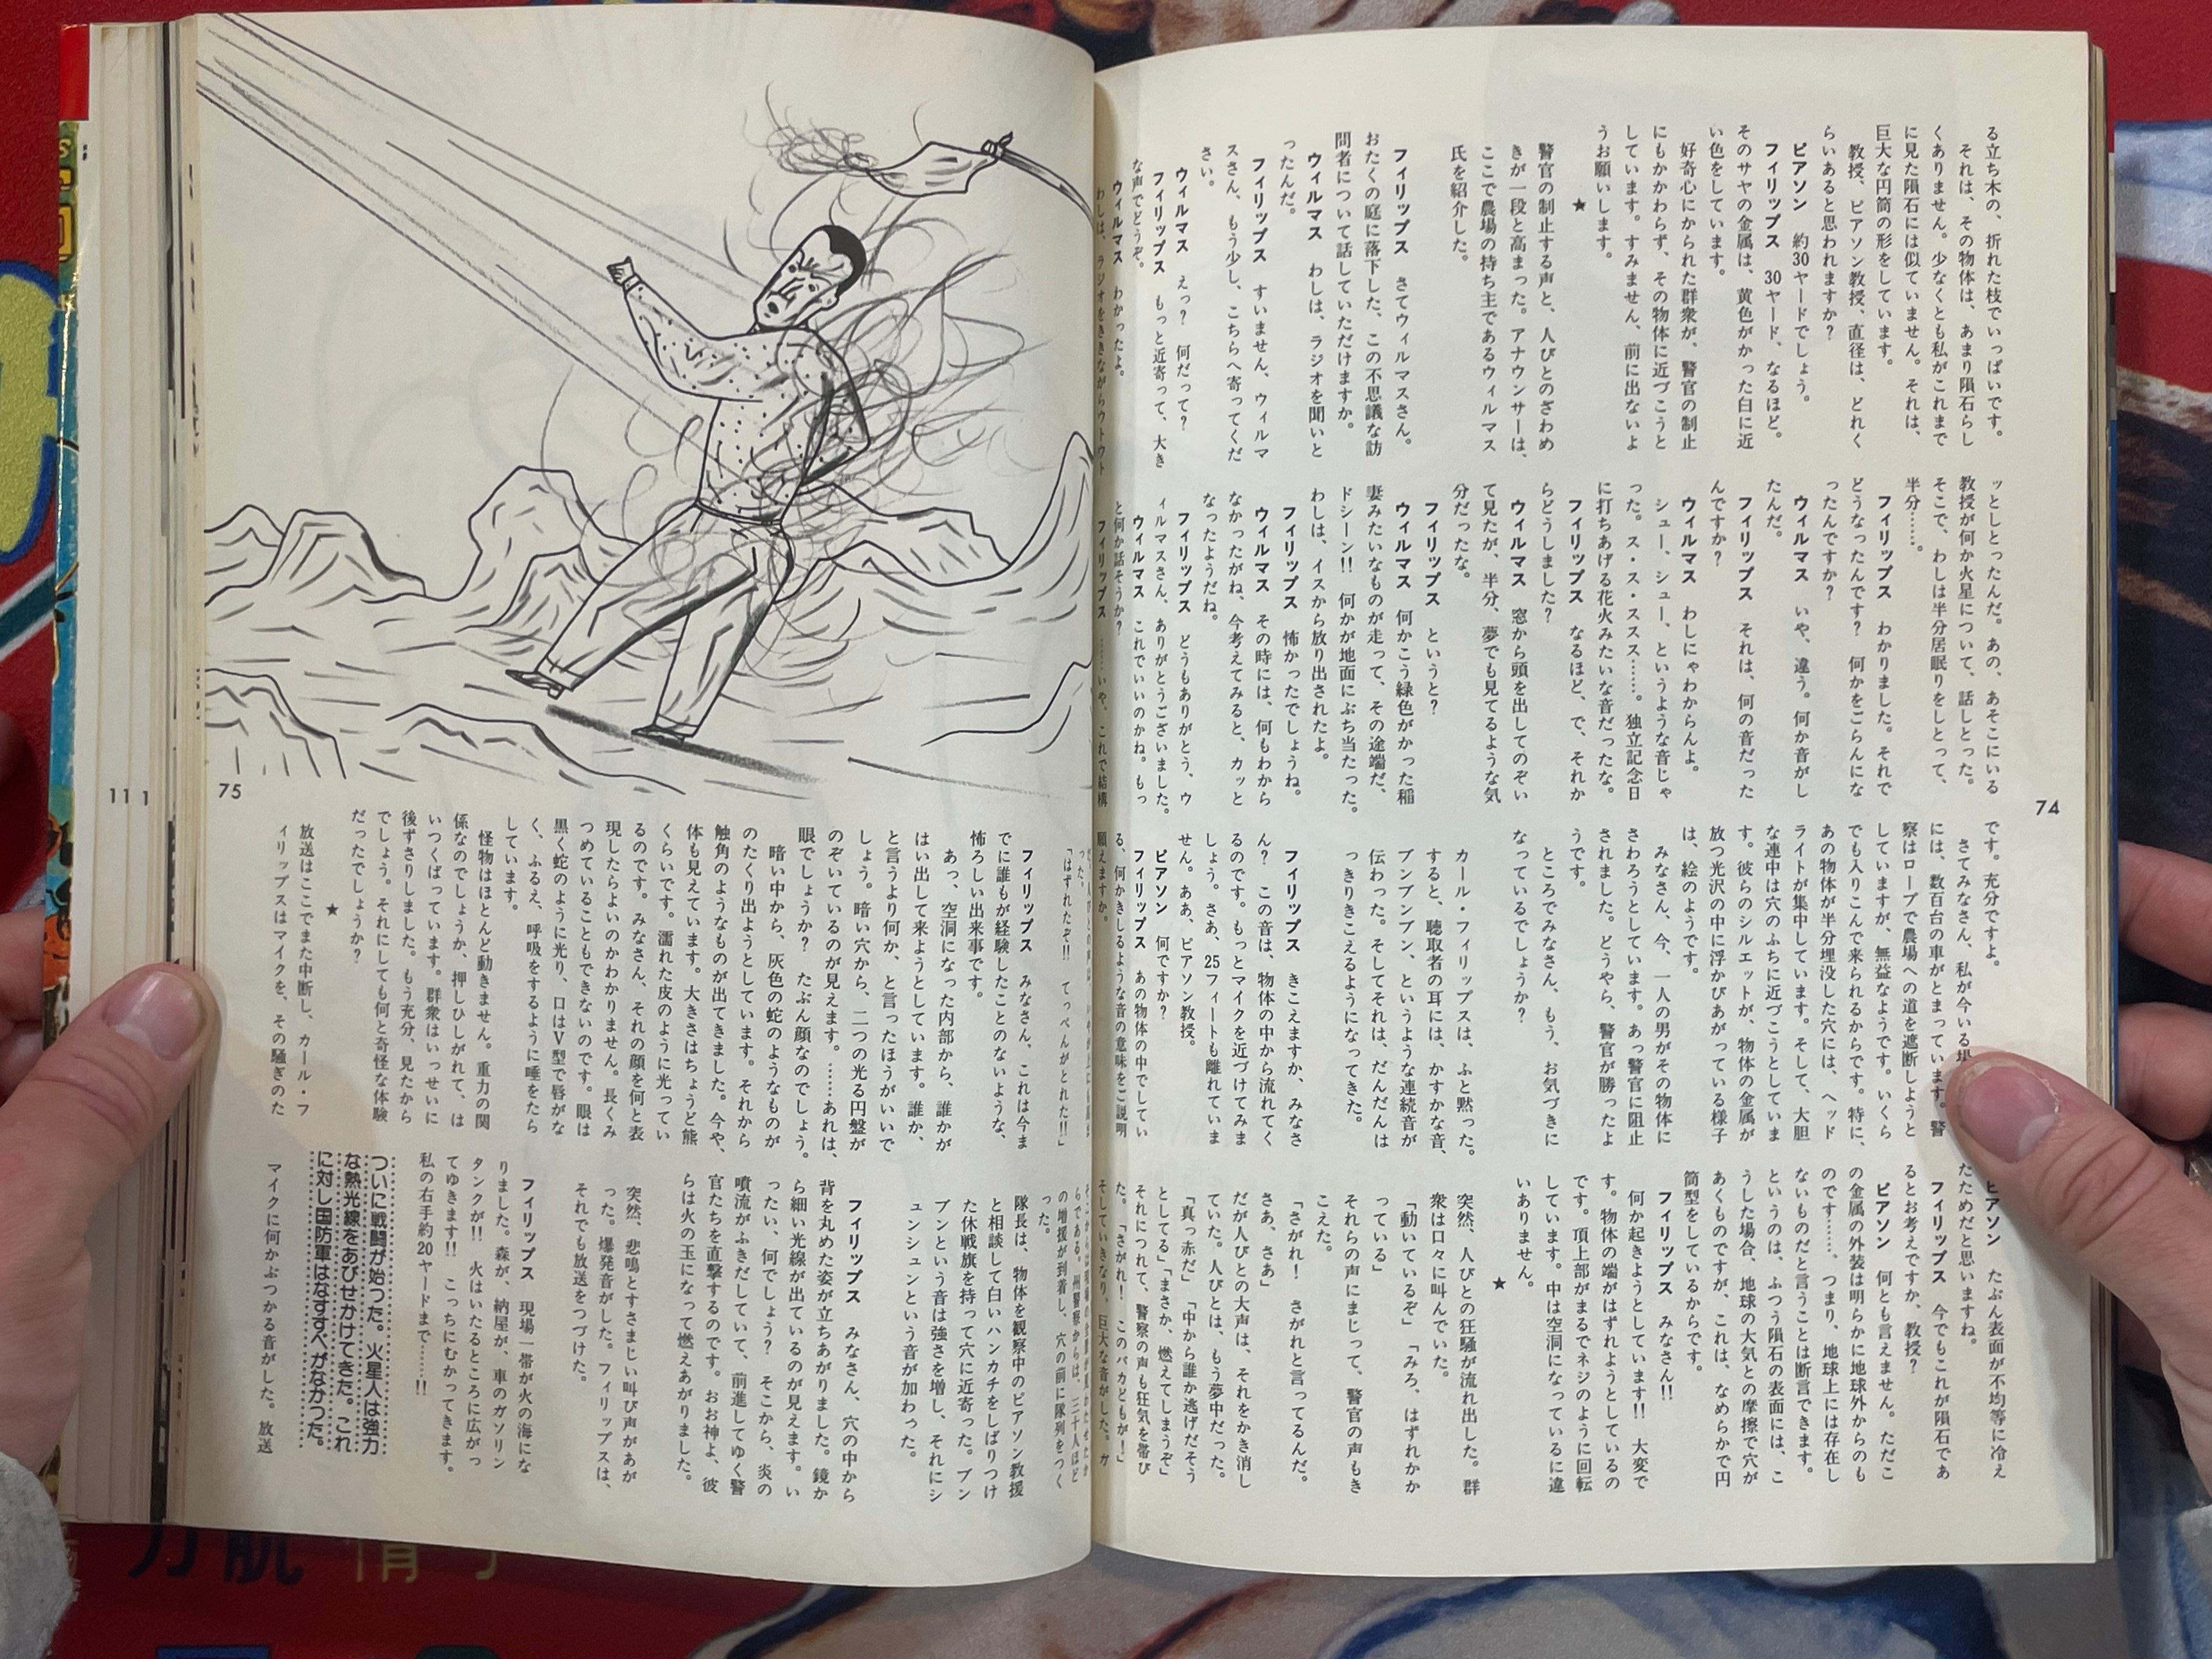 る立ち木の、折れた枝でいっぱいです。
それは、その物体は、あまり隕石らし
くありません。少なくとも私がこれまで
に見た隕石には似ていません。それは、
巨大な円筒の形をしています。
教授、ピアソン教授、直径は、どれく
らいあると思われますか?
ピアソン 約30ヤードでしょう。
フィリップス 30ヤード、なるほど。
そのサヤの金属は、黄色がかった白に近
い色をしています。
好奇心にかられた群衆が、警官の制止
にもかかわらず、その物体に近づこうと
しています。すみません、前に出ないよ
うお願いします。
★
警官の制止する声と、人びとのざわめ
きが一段と高まった。アナウンサーは、
ここで農場の持ち主であるウィルマス
氏を紹介した。
フィリップス さてウィルマスさん。
おたくの庭に落下した、この不思議な訪
問者について話していただけますか。
ウィルマス わしは、ラジオを聞いと
ったんだ。
フィリップス すいません、ウィルマ
スさん、もう少し、こちらへ寄ってくだ
さい。
ウィルマス えっ? 何だって?
フィリップス もっと近寄って、大き
な声でどうぞ。
ウィルマス わかったよ。
わしは、ラジオをききながらウトウト
ッとしとったんだ。あの、あそこにいる
教授が何か火星について、話しとった。
そこで、わしは半分居眠りをしとって、
半分……。
フィリップス わかりました。それで
どうなったんです? 何かをごらんにな
ったんですか?
ウィルマス いや、違う。何か音がし
たんだ。
フィリップス それは、何の音だった
んですか?
ウィルマス わしにゃわからんよ。
シュー、シュー、というような音じゃ
った。ス・ス・ススス……。独立記念日
に打ちあげる花火みたいな音だったな。
フィリップス なるほど、で、それか
らどうしました?
ウィルマス 窓から頭を出してのぞい
て見たが、半分、夢でも見てるような気
分だったな。
フィリップス というと?
ウィルマス 何かこう緑色がかった稲
妻みたいなものが走って、その途端だ、
ドシーン!! 何かが地面にぶち当たった。
わしは、イスから放り出されたよ。
フィリップス 怖かったでしょうね。
ウィルマス その時には、何もわから
なかったがね、今考えてみると、カッと
なったようだね。
フィリップス どうもありがとう、ウ
ィルマスさん、ありがとうございました。
ウィルマス これでいいのかね。もっ
と何か話そうか?
フィリップス ……いや、これで結構
です。充分ですよ。
さてみなさん、私が今いる
には、数百台の車がとまっています。警
察はロープで農場への道を遮断しようと
していますが、無益なようです。いくら
でも入りこんで来られるからです。特に、
あの物体が半分埋没した穴には、ヘッド
ライトが集中しています。そして、大胆
な連中は穴のふちに近づこうとしていま
す。彼らのシルエットが、物体の金属が
放つ光沢の中に浮かびあがっている様子
は、絵のようです。
みなさん、今、一人の男がその物体に
さわろうとしています。あっ警官に阻止
されました。どうやら、警官が勝ったよ
うです。
ところでみなさん、もう、お気づきに
なっているでしょうか?
カール・フィリップスは、ふと黙った。
すると、聴取者の耳には、かすかな音、
ブンブンブン、というような連続音が
伝わった。そしてそれは、だんだんは
っきりきこえるようになってきた。
フィリップス きこえますか、みなさ
ん? この音は、物体の中から流れてく
るのです。もっとマイクを近づけてみま
しょう。さあ、25フィートも離れていま
せん。ああ、ピアソン教授。
ピアソン 何ですか?
フィリップス あの物体の中でしてい
る、何かきしるような音の意味をご説明
願えますか。
ピアソン たぶん表面が不均等に冷え
たためだと思いますね。
フィリップス 今でもこれが隕石であ
るとお考えですか、教授?
ピアソン 何とも言えません。ただこ
の金属の外装は明らかに地球外からのも
のです……、つまり、地球上には存在し
ないものだと言うことは断言できます。
というのは、ふつう隕石の表面には、こ
うした場合、地球の大気との摩擦で穴が
あくものですが、これは、なめらかで円
筒型をしているからです。
フィリップス みなさん!!
何か起きようとしています!! 大変で
す。物体の端がはずれようとしているの
です。頂上部がまるでネジのように回転
しています。中は空洞になっているに違
いありません。
★
突然、人びとの狂騒が流れ出した。群
衆は口々に叫んでいた。
「動いているぞ」「みろ、はずれかか
っている」
それらの声にまじって、警官の声もき
こえた。
「さがれ! さがれと言ってるんだ。
さあ、さあ」
だが人びとの大声は、それをかき消し
ていた。人びとは、もう夢中だった。
「真っ赤だ」「中から誰か逃げだそう
としてる」「まさか、燃えてしまうぞ」
それにつれて、警察の声も狂気を帯び
た。「さがれ! このバカどもが!」
そしていきなり、巨大な音がした。ガ
74
「はずれたぞ!! てっぺんがとれた!!」
フィリップス みなさん、これは今ま
でに誰もが経験したことのないような、
怖ろしい出来事です。
あっ、空洞になった内部から、誰かが
はい出して来ようとしています。誰か、
と言うより何か、と言ったほうがいいで
しょう。暗い穴から、二つの光る円盤が
のぞいているのが見えます。……あれは、
眼でしょうか? たぶん顔なのでしょう。
暗い中から、灰色の蛇のようなものが
のたくり出ようとしています。それから
触角のようなものが出てきました。今や、
体も見えています。大きさはちょうど熊
くらいです。濡れた皮のように光ってい
るのです。みなさん、それの顔を何と表
現したらよいのかわかりません。長くみ
つめていることもできないのです。眼は
黒く蛇のように光り、口はV型で唇がな
く、ふるえ、呼吸をするように唾をたら
しています。
怪物はほとんど動きません。重力の関
係なのでしょうか、押しひしがれて、は
いつくばっています。群衆はいっせいに
後ずさりしました。もう充分、見たから
でしょう。それにしても何と奇怪な体験
だったでしょうか?
★
放送はここでまた中断し、カール・フ
ィリップスはマイクを、その騒ぎのた
の増援が到着し、穴の前に隊列をつく
った。
隊長は、物体を観察中のピアソン教授
と相談して白いハンカチをしばりつけ
た休戦旗を持って穴に近寄った。ブン
ブンという音は強さを増し、それにシ
ュンシュンという音が加わった。
フィリップス みなさん、穴の中から
背を丸めた姿が立ちあがりました。鏡か
ら細い光線が出ているのが見えます。い
ったい、何でしょう? そこから、炎の
噴流がふきだしていて、前進してゆく警
官たちを直撃するのです。おお神よ、彼
らは火の玉になって燃えあがりました。
突然、悲鳴とすさまじい叫び声があが
った。爆発音がした。フィリップスは、
それでも放送をつづけた。
フィリップス 現場一帯が火の海にな
りました。森が、納屋が、車のガソリン
タンクが!! 火はいたるところに広がっ
てゆきます!! こっちにむかってきます。
私の右手約20ヤードまで……!!
ついに戦闘が始った。火星人は強力
な熱光線をあびせかけてきた。これ
に対し国防軍はなすすべがなかった。
マイクに何かぶつかる音がした。放送
75
111